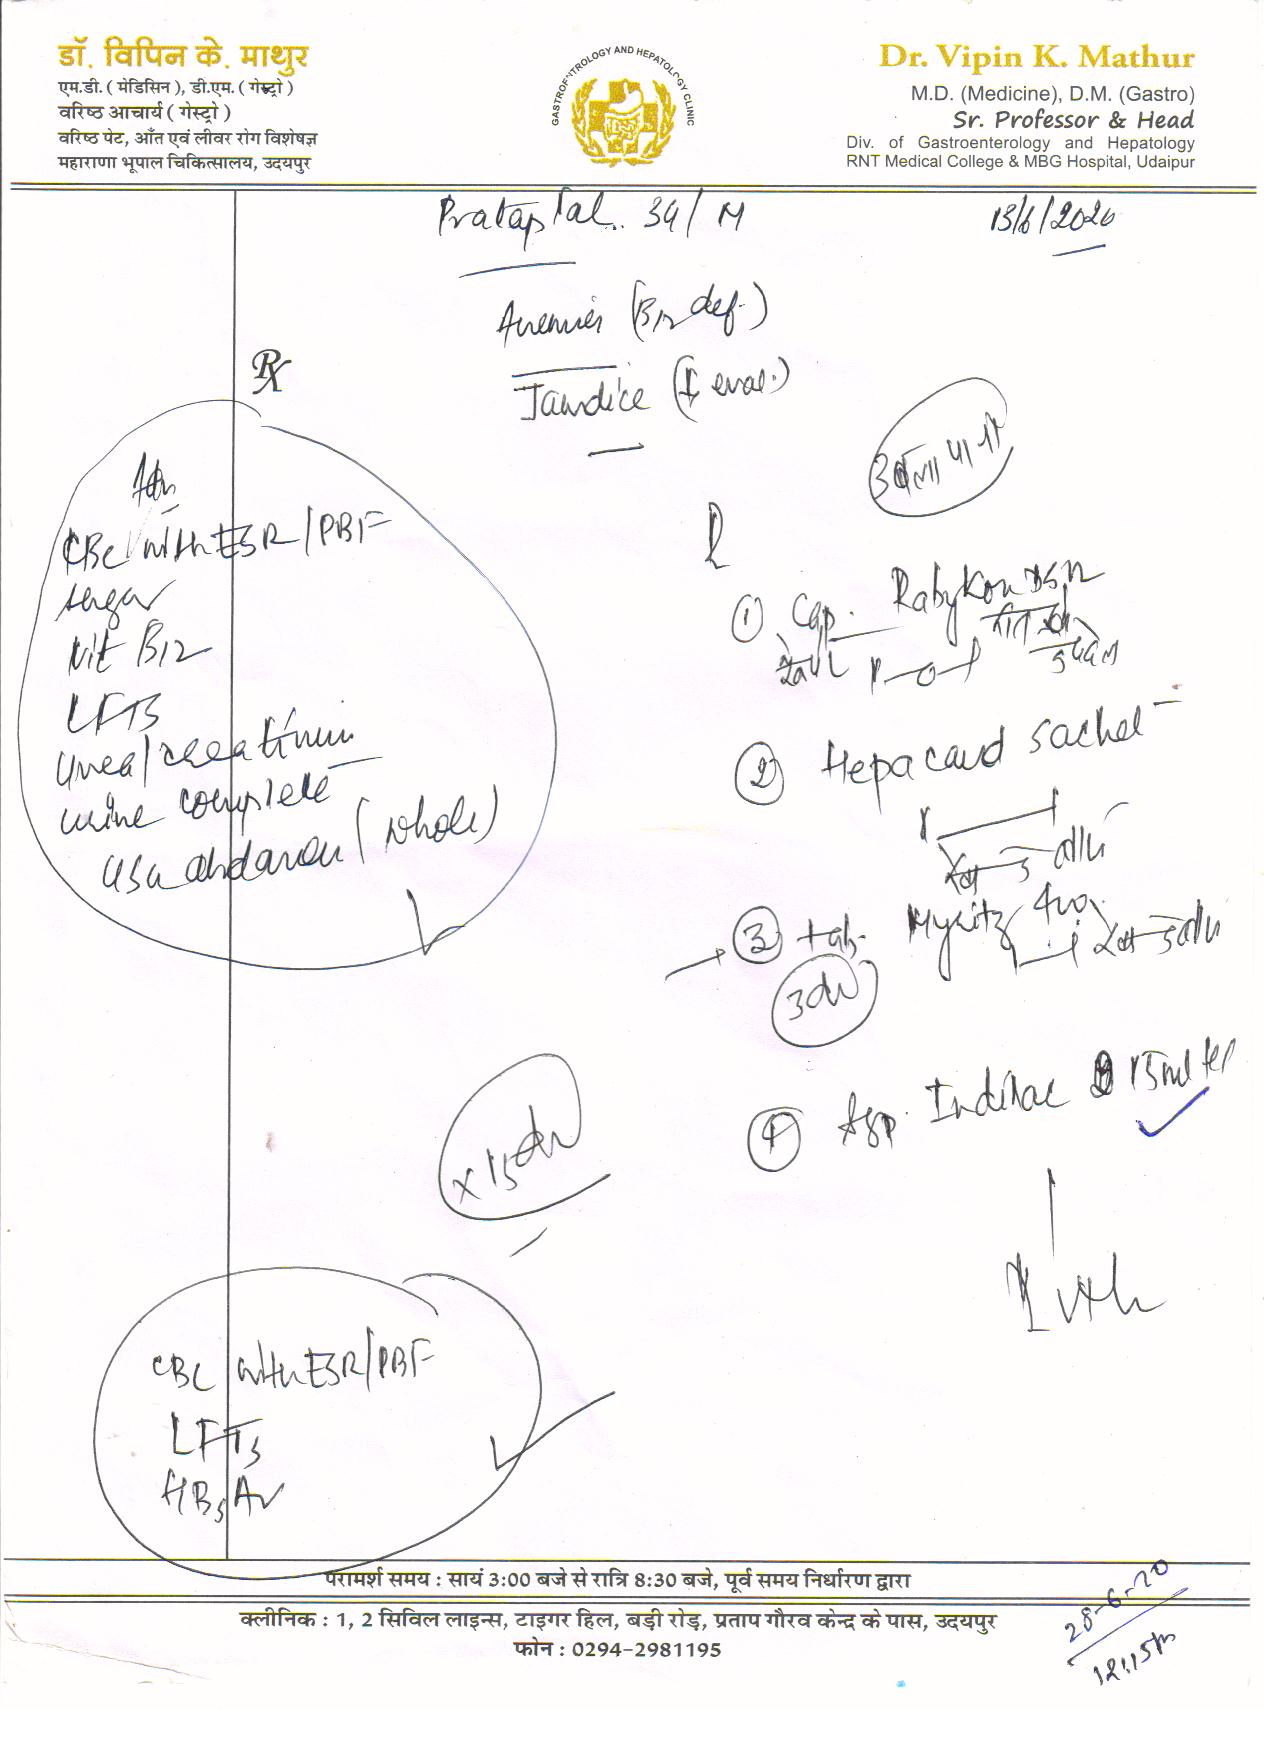 डॉ. विपिन के. माथुर
एम.डी. ( मेडिसिन ), डी.एम. ( गेस्ट्रो )
वरिष्ठ आचार्य ( गेस्ट्रो )
वरिष्ठ पेट, आँत एवं लीवर रोग विशेषज्ञ
महाराणा भूपाल चिकित्सालय, उदयपुर
GASTROENTROLOGY AND HEPATOLOGY CLINIC
Dr. Vipin K. Mathur
M.D. (Medicine), D.M. (Gastro)
Sr. Professor & Head
Div. of Gastroenterology and Hepatology
RNT Medical College & MBG Hospital, Udaipur
Prataplal. 34/M
13/6/2020
Anemia (B12 def.)
Jaundice (I eval.)
Rx
CBC with ESR/PBF
sugar
Vit B12
LFTS
Urea/creatinin
urine complete
USG abdomen (whole)
उबला पानी
① Cap. Rabykon DSR
1-0-1
② Hepacard sachet
③ tab.
④ Syp. 15ml
x 15
CBC with ESR/PBF
LFTs
HBsAg
परामर्श समय : सायं 3:00 बजे से रात्रि 8:30 बजे, पूर्व समय निर्धारण द्वारा
क्लीनिक : 1, 2 सिविल लाइन्स, टाइगर हिल, बड़ी रोड़, प्रताप गौरव केन्द्र के पास, उदयपुर
फोन : 0294-2981195
28-6-20